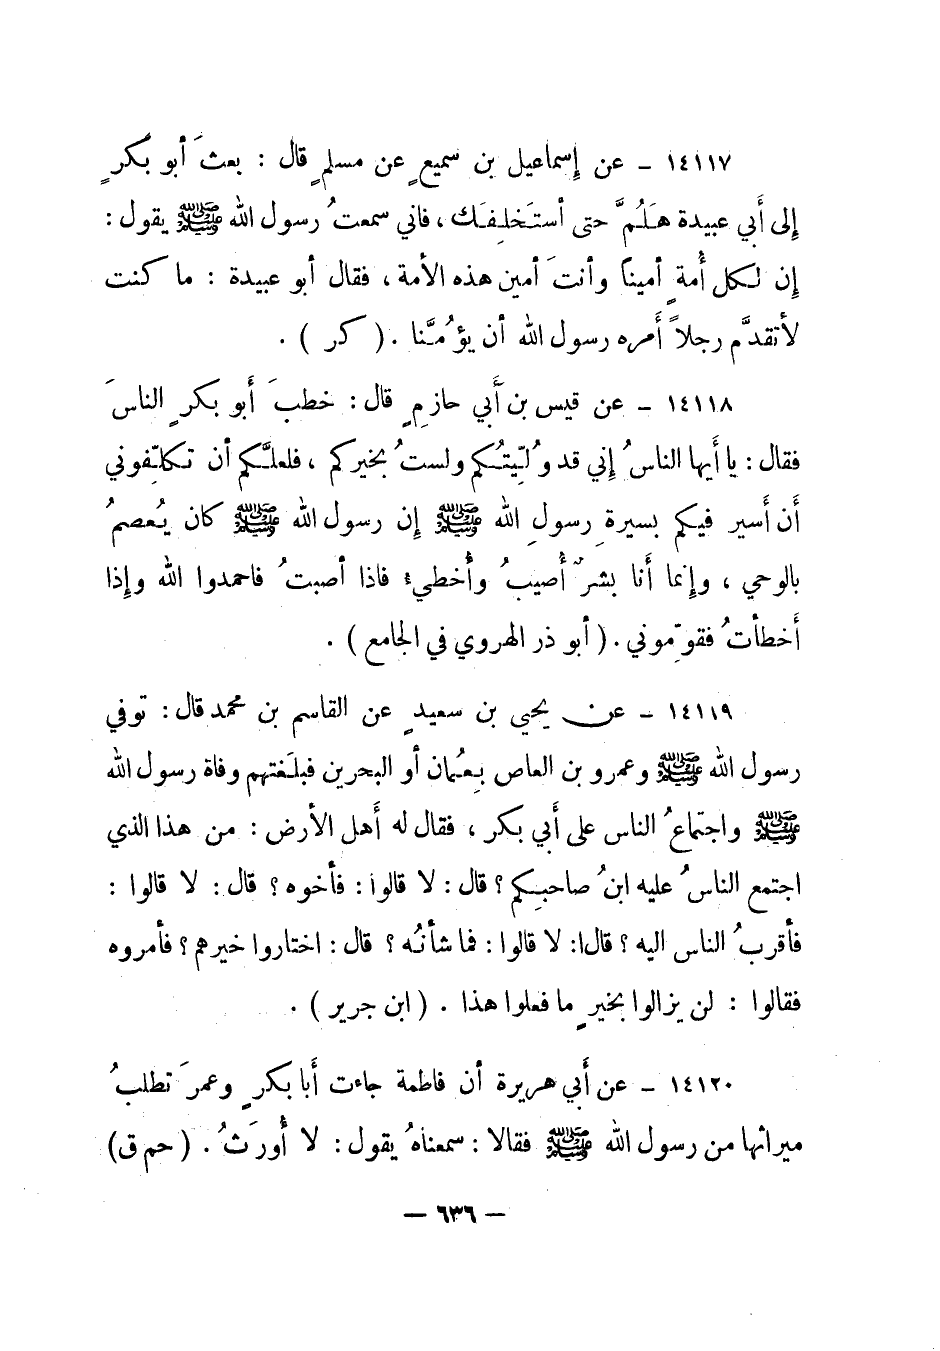 ١٤١١٧ - عن إسماعيل بن سميعٍ عن مسلمٍ قال : بعثَ أبو بكرٍ
إلى أَبي عبيدة هَلُمَّ حتى أستَخلِفَك ، فاني سمعتُ رسول الله ﷺ يقول :
إن لكل أُمةٍ أميناً وأنتَ أمين هذه الأمة ، فقال أبو عبيدة : ما كنت
لأتقدَّم رجلاً أَمره رسول الله أن يؤُمَّنا . ( كر ) .
١٤١١٨ - عن قيس بن أَبي حازمٍ قال : خطبَ أَبو بكرٍ الناسَ
فقال : يا أَيها الناسُ إني قد وُلِّيتُكم ولستُ بخيركم ، فلعلَّكم أن تكلّفوني
أَن أَسير فيكم بسيرةِ رسولِ الله ﷺ إن رسول الله ﷺ كان يُعصمُ
بالوحي ، وإنما أنا بشرٌ أُصيبُ وأُخطيء فاذا أصبتُ فاحمدوا الله وإذا
أَخطأتُ فقوِّموني . ( أبو ذر الهروي في الجامع ) .
١٤١١٩ - عن يحيي بن سعيدٍ عن القاسم بن محمد قال : توفي
رسول الله ﷺ وعمرو بن العاص بِعُمان أو البحرين فبلَغتهم وفاة رسول الله
ﷺ واجتماعُ الناس على أَبي بكر ، فقال له أَهل الأرض : من هذا الذي
اجتمع الناسُ عليه ابنُ صاحبكم ؟ قال : لا قالوا : فأخوه ؟ قال : لا قالوا :
فأقربُ الناس اليه ؟ قال : لا قالوا : فما شأنُه ؟ قال : اختاروا خيرهم ؟ فأمروه
فقالوا : لن يزالوا بخيرٍ ما فعلوا هذا . ( ابن جرير ) .
١٤١٢٠ - عن أَبي هريرة أن فاطمة جاءت أَبا بكرٍ وعمرَ تطلبُ
ميراثها من رسول الله ﷺ فقالا : سمعناهُ يقول : لا أُورَثُ . ( حم ق )
— ٦٣٦ —